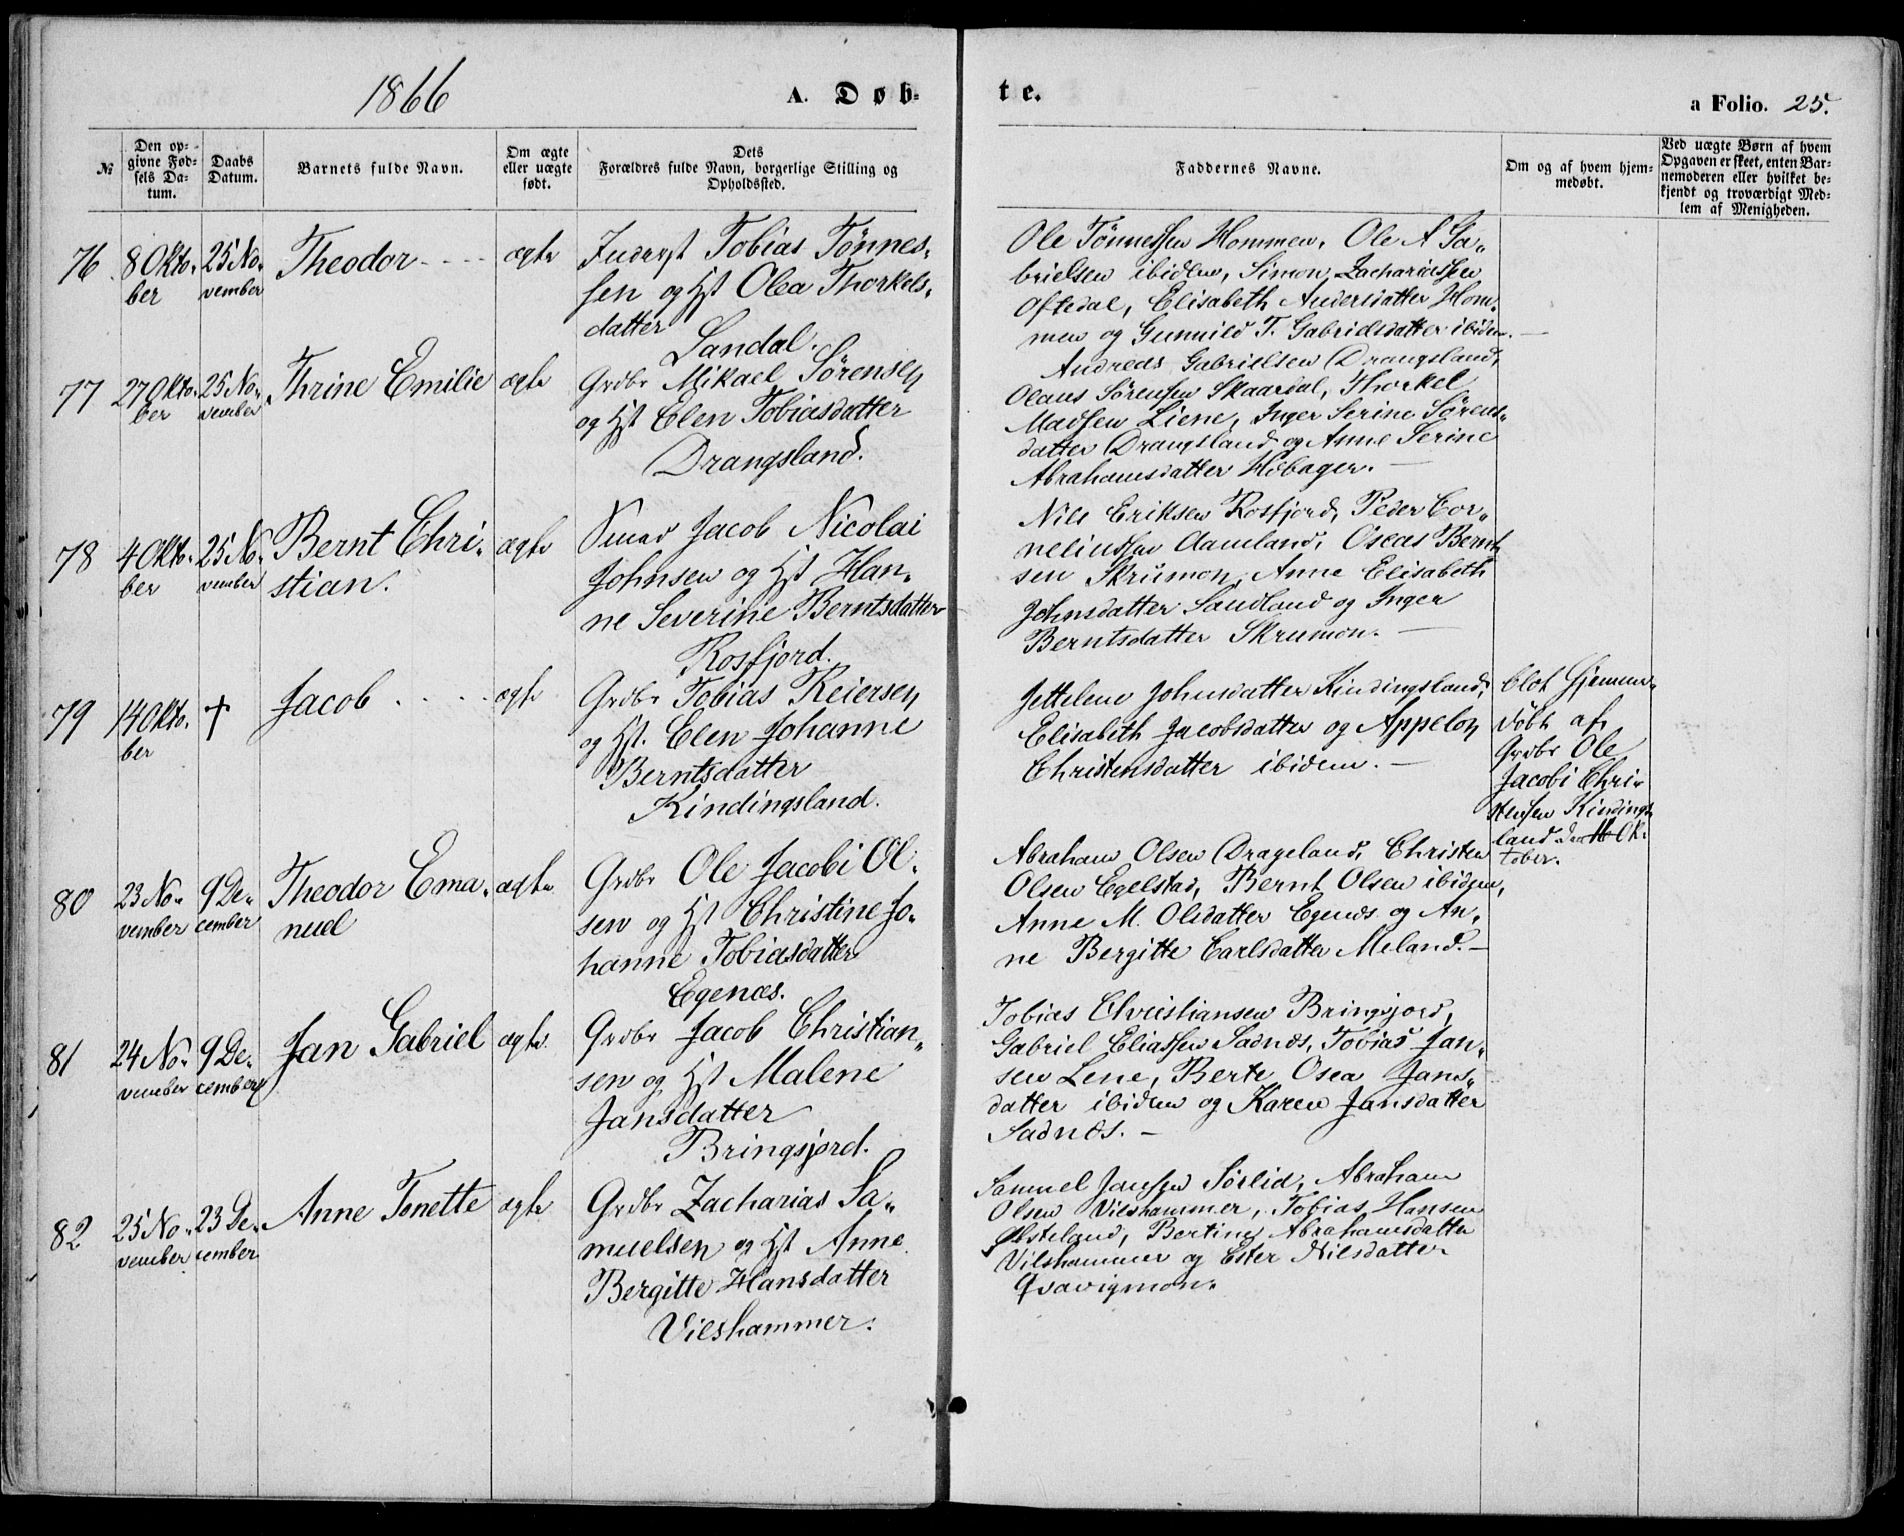 1866
A. Døb-
te.
a Folio. 25.
№
Den op-
givne Fød-
sels Da-
tum.
Daabs
Datum.
Barnets fulde Navn.
Om ægte
eller uægte
født.
Dets
Forældres fulde Navn, borgerlige Stilling og
Opholdssted.
Faddernes Navne.
Om og af hvem hjem-
medøbt.
Ved uægte Børn af hvem
Opgaven er skeet, enten Bar-
nemoderen eller hvilket be-
kjendt og troværdigt Med-
lem af Menigheden.
76
8 Okto-
ber
25 No-
vember
Theodor
ægte
Tobias Tønnes-
sen og Hst Olea Thorkels-
datter
Landal.
Ole Tønnessen Hommen, Ole A Ga-
brielsen ibidem, Simon Zachariassen
Oftedal, Elisabeth Andersdatter Hom-
men og Gunnild T. Gabrielsdatter ibidem.
77
27 Okto-
ber
25 No-
vember
Thrine Emilie
ægte
Grdbr Mikael Sørensen
og Hst Elen Tobiasdatter
Drangsland.
Andreas Gabrielsen Drangsland,
Olaus Sørensen Skaardal, Thorkel
Madsen Liene, Inger Serine Sørens-
datter Drangsland og Anne Serine
Abrahamsdatter Høbager.
78
4 Okto-
ber
25 No-
vember
Bernt Chri-
stian.
ægte
Smed Jacob Nicolai
Johnsen og Hst Han-
ne Severine Berntsdatter
Rosfjord.
Nils Eriksen Rosfjord, Peder Cor-
neliussen Aamland, Oseas Bernt-
sen Skrumon, Anne Elisabeth
Johnsdatter Sandland og Inger
Berntsdatter Skrumon.
79
14 Okto-
ber
†
Jacob
ægte
Grdbr Tobias Reiersen
og Hst. Elen Johanne
Berntsdatter
Kindingsland.
Jettelene Johnsdatter Kindingsland,
Elisabeth Jacobsdatter og Appelon
Christensdatter ibidem.
blot Hjemme-
døbt af
Grdbr Ole
Jacobi Chri-
stensen Kindings-
land den Ok-
tober.
80
23 No-
vember
9 De-
cember
Theodor Ema-
nuel
ægte
Grdbr Ole Jacobi Ol-
sen og Hst Christine Jo-
hanne Tobiasdatter
Egenæs.
Abraham Olsen Drageland, Christen
Olsen Egelstad, Bernt Olsen ibidem,
Anne M. Olsdatter Egenæs og An-
ne Bergitte Carlsdatter Meland.
81
24 No-
vember
9 De-
cember
Jan Gabriel
ægte
Grdbr Jacob Christian-
sen og Hst Malene
Jansdatter
Bringsjord.
Tobias Christiansen Bringsjord,
Gabriel Eliassen Sadnæs, Tobias Jan-
sen Lene, Berte Osea Jans-
datter ibidem og Karen Jansdatter
Sadnæs.
82
25 No-
vember
23 De-
cember
Anne Tonette
ægte
Grdbr Zacharias Sa-
muelsen og Hst Anne
Bergitte Hansdatter
Vilshammer.
Samuel Jansen Sørlid, Abraham
Olsen Vilshammer, Tobias Hansen
Østeland, Bertine Abrahamsdatter
Vilshammer og Ester Nilsdatter
Qvavigmon.